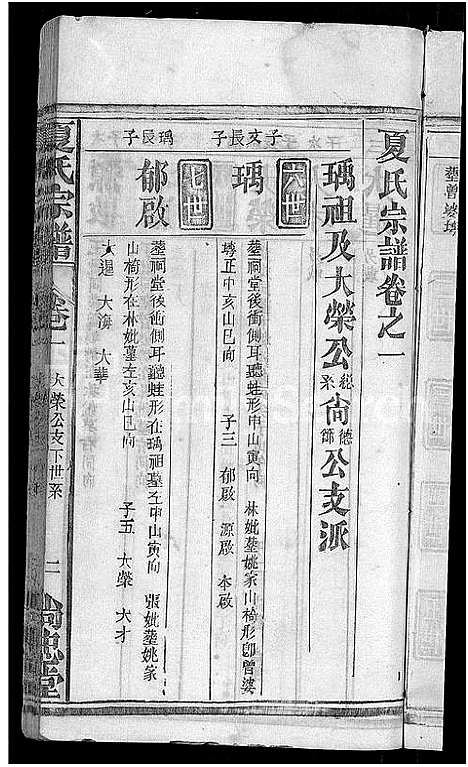 葬曾婆塆
夏氏宗譜卷之一
瑀祖及大榮公總系尙德師公支派
六世
子文長子
瑀
葬祠堂後衝側耳聽蛙形申山寅向 林妣葬姚家山椅形卽曾婆
塆正中亥山巳向 子三 郁啟 源啟 本啟
七世
瑀長子
郁啟
葬祠堂後衝側耳聽蛙形在瑀祖墓左申山寅向 張妣葬姚家
山椅形在林妣墓左亥山巳向 子五 大榮 大才
大進 大海 大華
夏氏宗譜 卷一 大榮公支下世系 二 尙德堂